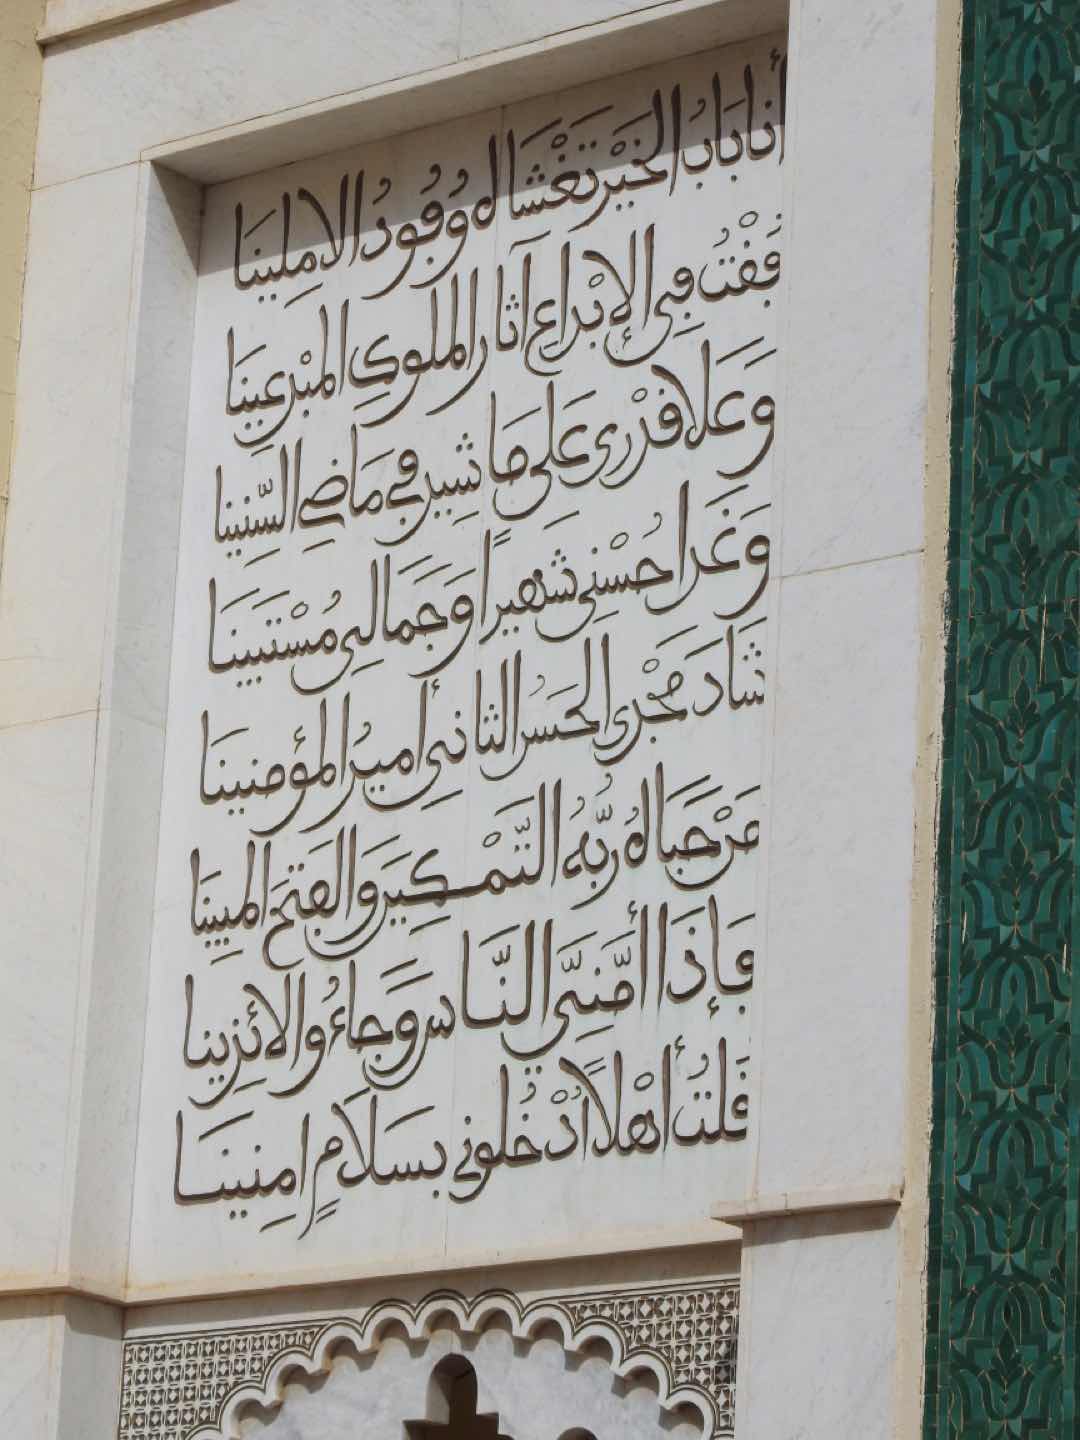 أنا بَابُ الخَيْر تَغْشَاه وُفُودُ الامِلِينَا
فُقْتُ فِي الإبْدَاعِ آثار الملوكِ المبْدِعِينَا
وَعَلَا قدْرى عَلَى مَا شِيدَ فِي مَاضِي السِّنِينا
وَغَدَا حُسْنِي شَهيراً وَجَمَالِي مُسْتَبِينَا
شَادَ مَجْدِي الحَسَنُ الثانِي أميرُ المؤمنينَا
مَنْ حَبَاهُ رَبُّهُ التَّمْكِينَ وَالفَتْحَ المبِينَا
فَإِذَا أمَّنِيَ النَّاسُ وَجَاءُوا لائِذِينا
قُلتُ أهْلاً ادْخُلُوني بسَلاَمٍ امِنِينَا